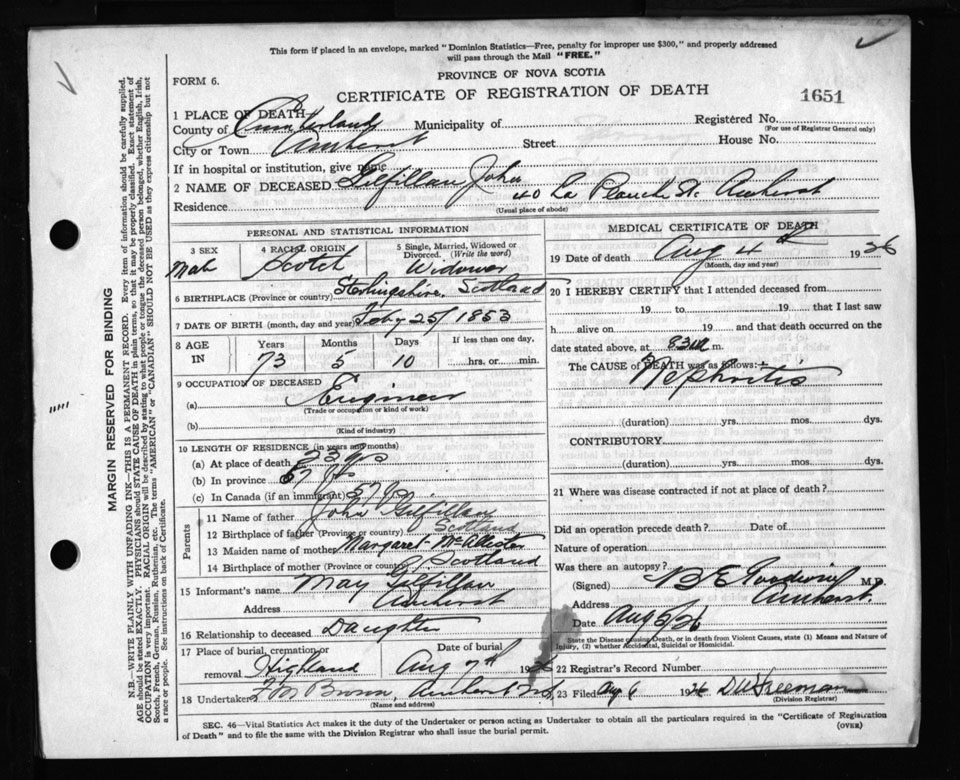 This form if placed in an envelope, marked "Dominion Statistics—Free, penalty for improper use $300," and properly addressed
will pass through the Mail "FREE."
FORM 6.
PROVINCE OF NOVA SCOTIA
CERTIFICATE OF REGISTRATION OF DEATH
1651
1 PLACE OF DEATH
County of Cumberland Municipality of Registered No.
(For use of Registrar General only)
City or Town Amherst Street House No.
If in hospital or institution, give name
2 NAME OF DECEASED Gilfillan John
Residence 40 La Planch St. Amherst
(Usual place of abode)
PERSONAL AND STATISTICAL INFORMATION
3 SEX 4 RACIAL ORIGIN 5 Single, Married, Widowed or
Divorced. (Write the word)
Male Scotch Widower
6 BIRTHPLACE (Province or country) Sterlingshire, Scotland
7 DATE OF BIRTH (month, day and year) Feby 25/1853
8 AGE IN Years Months Days If less than one day,
73 5 10 hrs. or min.
9 OCCUPATION OF DECEASED
(a) Engineer
(Trade or occupation or kind of work)
(b)
(Kind of industry)
10 LENGTH OF RESIDENCE (in years and months)
(a) At place of death
(b) In province
(c) In Canada (if an immigrant)
Parents
11 Name of father John Gilfillan
12 Birthplace of father (Province or country) Scotland
13 Maiden name of mother Margaret McAlister
14 Birthplace of mother (Province or country) Scotland
15 Informant's name May Gilfillan
Address Amherst
16 Relationship to deceased Daughter
17 Place of burial, cremation or Date of burial
removal Highland Aug 7th 1926
18 Undertaker F M Brown, Amherst
(Name and address)
MEDICAL CERTIFICATE OF DEATH
19 Date of death Aug 4th 1926
(Month, day and year)
20 I HEREBY CERTIFY that I attended deceased from
19 to 19 that I last saw
h alive on 19 and that death occurred on the
date stated above, at m.
The CAUSE of DEATH was as follows:
Nephritis
(duration) yrs. mos. dys.
CONTRIBUTORY
(duration) yrs. mos. dys.
21 Where was disease contracted if not at place of death?
Did an operation precede death? Date of
Nature of operation
Was there an autopsy?
(Signed) B E Goodwin M.D.
Address Amherst.
Date Aug 5/26
State the Disease causing Death, or in death from Violent Causes, state (1) Means and Nature of
Injury, (2) whether Accidental, Suicidal or Homicidal.
22 Registrar's Record Number
23 Filed Aug 6 1926 Freeman
(Division Registrar)
SEC. 46—Vital Statistics Act makes it the duty of the Undertaker or person acting as Undertaker to obtain all the particulars required in the "Certificate of Registration
of Death" and to file the same with the Division Registrar who shall issue the burial permit.
(OVER)
MARGIN RESERVED FOR BINDING
N.B.—WRITE PLAINLY WITH UNFADING INK—THIS IS A PERMANENT RECORD. Every item of information should be carefully supplied.
AGE should be stated EXACTLY. PHYSICIANS should STATE CAUSE OF DEATH in plain terms, so that it may be properly classified. Exact statement of
OCCUPATION is very important. RACIAL ORIGIN will be described by stating to what people or tongue the deceased person belonged, whether English, Irish,
Scotch, French, German, Russian, Ruthenian, etc. The terms "AMERICAN" or "CANADIAN" SHOULD NOT BE USED as they express citizenship but not
a race or people. See instructions on back of Certificate.